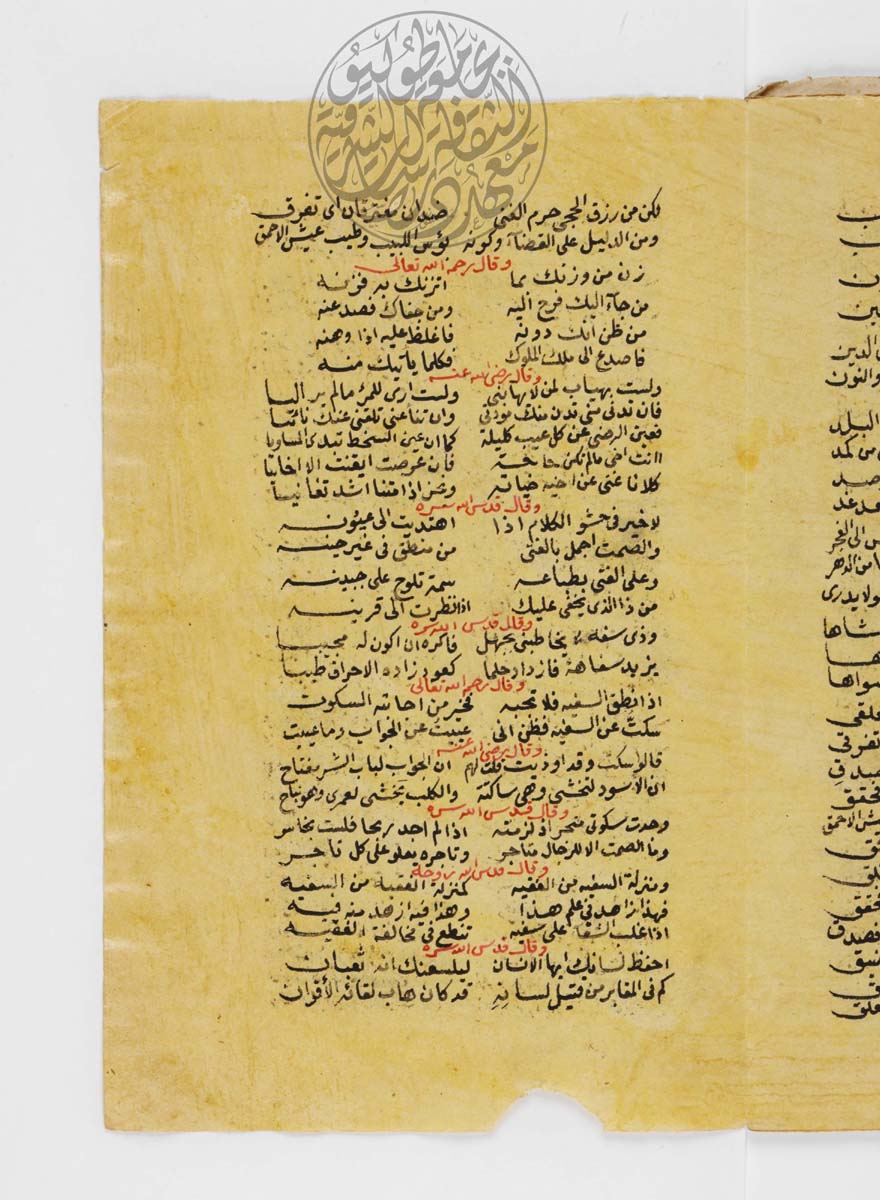 لكن من رزق الحجى حرم الغنى ضدان مفترقان اى تفرق
ومن الدليل على القضاء وكونه بؤس اللبيب وطيب عيش الاحمق
وقال رحمه الله تعالى
زن من وزنك بما اتزنك به فزنه
من جآء اليك فرح اليه ومن جفاك فصد عنه
من ظن انك دونه فاغلظ عليه اذا وهنه
فاصدع الى ملك الملوك فكلما ياتيك منه
وقال رضى الله عنه
ولست بهياب لمن لا يهابنى ولست ارى للمرء مالم ير اليا
فان تدنى منى تدن منك مودتى وان تنأ عنى تلقنى عنك نائيا
فعين الرضى عن كل عيب كليلة كما ان عين السخط تبدى المساويا
اانت اخى مالم تكن حاجة فان عرضت ايقنت الا اخا ليا
كلانا غنى عن اخيه حياته ونحن اذا متنا اشد تغانيا
وقال قدس الله سره
لا خير فى حشو الكلام اذا اهتديت الى عيونه
والصمت اجمل بالفتى من منطق فى غير حينه
وعلى الفتى بطباعه سمة تلوح على جبينه
من ذا الذى يخفى عليك اذا نظرت الى قرينه
وقال قدس الله سره
وذى سفه يخاطبنى بجهل فاكره ان اكون له مجيبا
يزيد سفاهة فازداد حلما كعود زاده الاحراق طيبا
وقال رحمه الله تعالى
اذا نطق السفيه فلا تجبه فخير من اجابته السكوت
سكت عن السفيه فظن انى عييت عن الجواب وما عييت
وقال رضى الله عنه
قالوا سكت وقد اوذيت قلت لهم ان الجواب لباب الشر مفتاح
ان الاسود لتخشى وهى ساكتة والكلب يخشى لعمرى وهو نباح
وقال قدس الله سره
وجدت سكوتى متجرا فلزمته اذا لم اجد ربحا فلست بخاسر
وما الصمت الا للرجال متاجر وتاجره يعلو على كل تاجر
وقال قدس الله روحه
ومنزلة السفيه من الفقيه كمنزلة الفقيه من السفيه
فهذا زاهد فى علم هذا وهذا فيه ازهد منه فيه
اذا غلب الشقا على سفيه تنطع فى مخالفة الفقيه
وقال قدس الله سره
احفظ لسانك ايها الانسان ليلسعنك انه ثعبان
كم فى المقابر من قتيل لسانه قد كان هاب لقائه الأقران